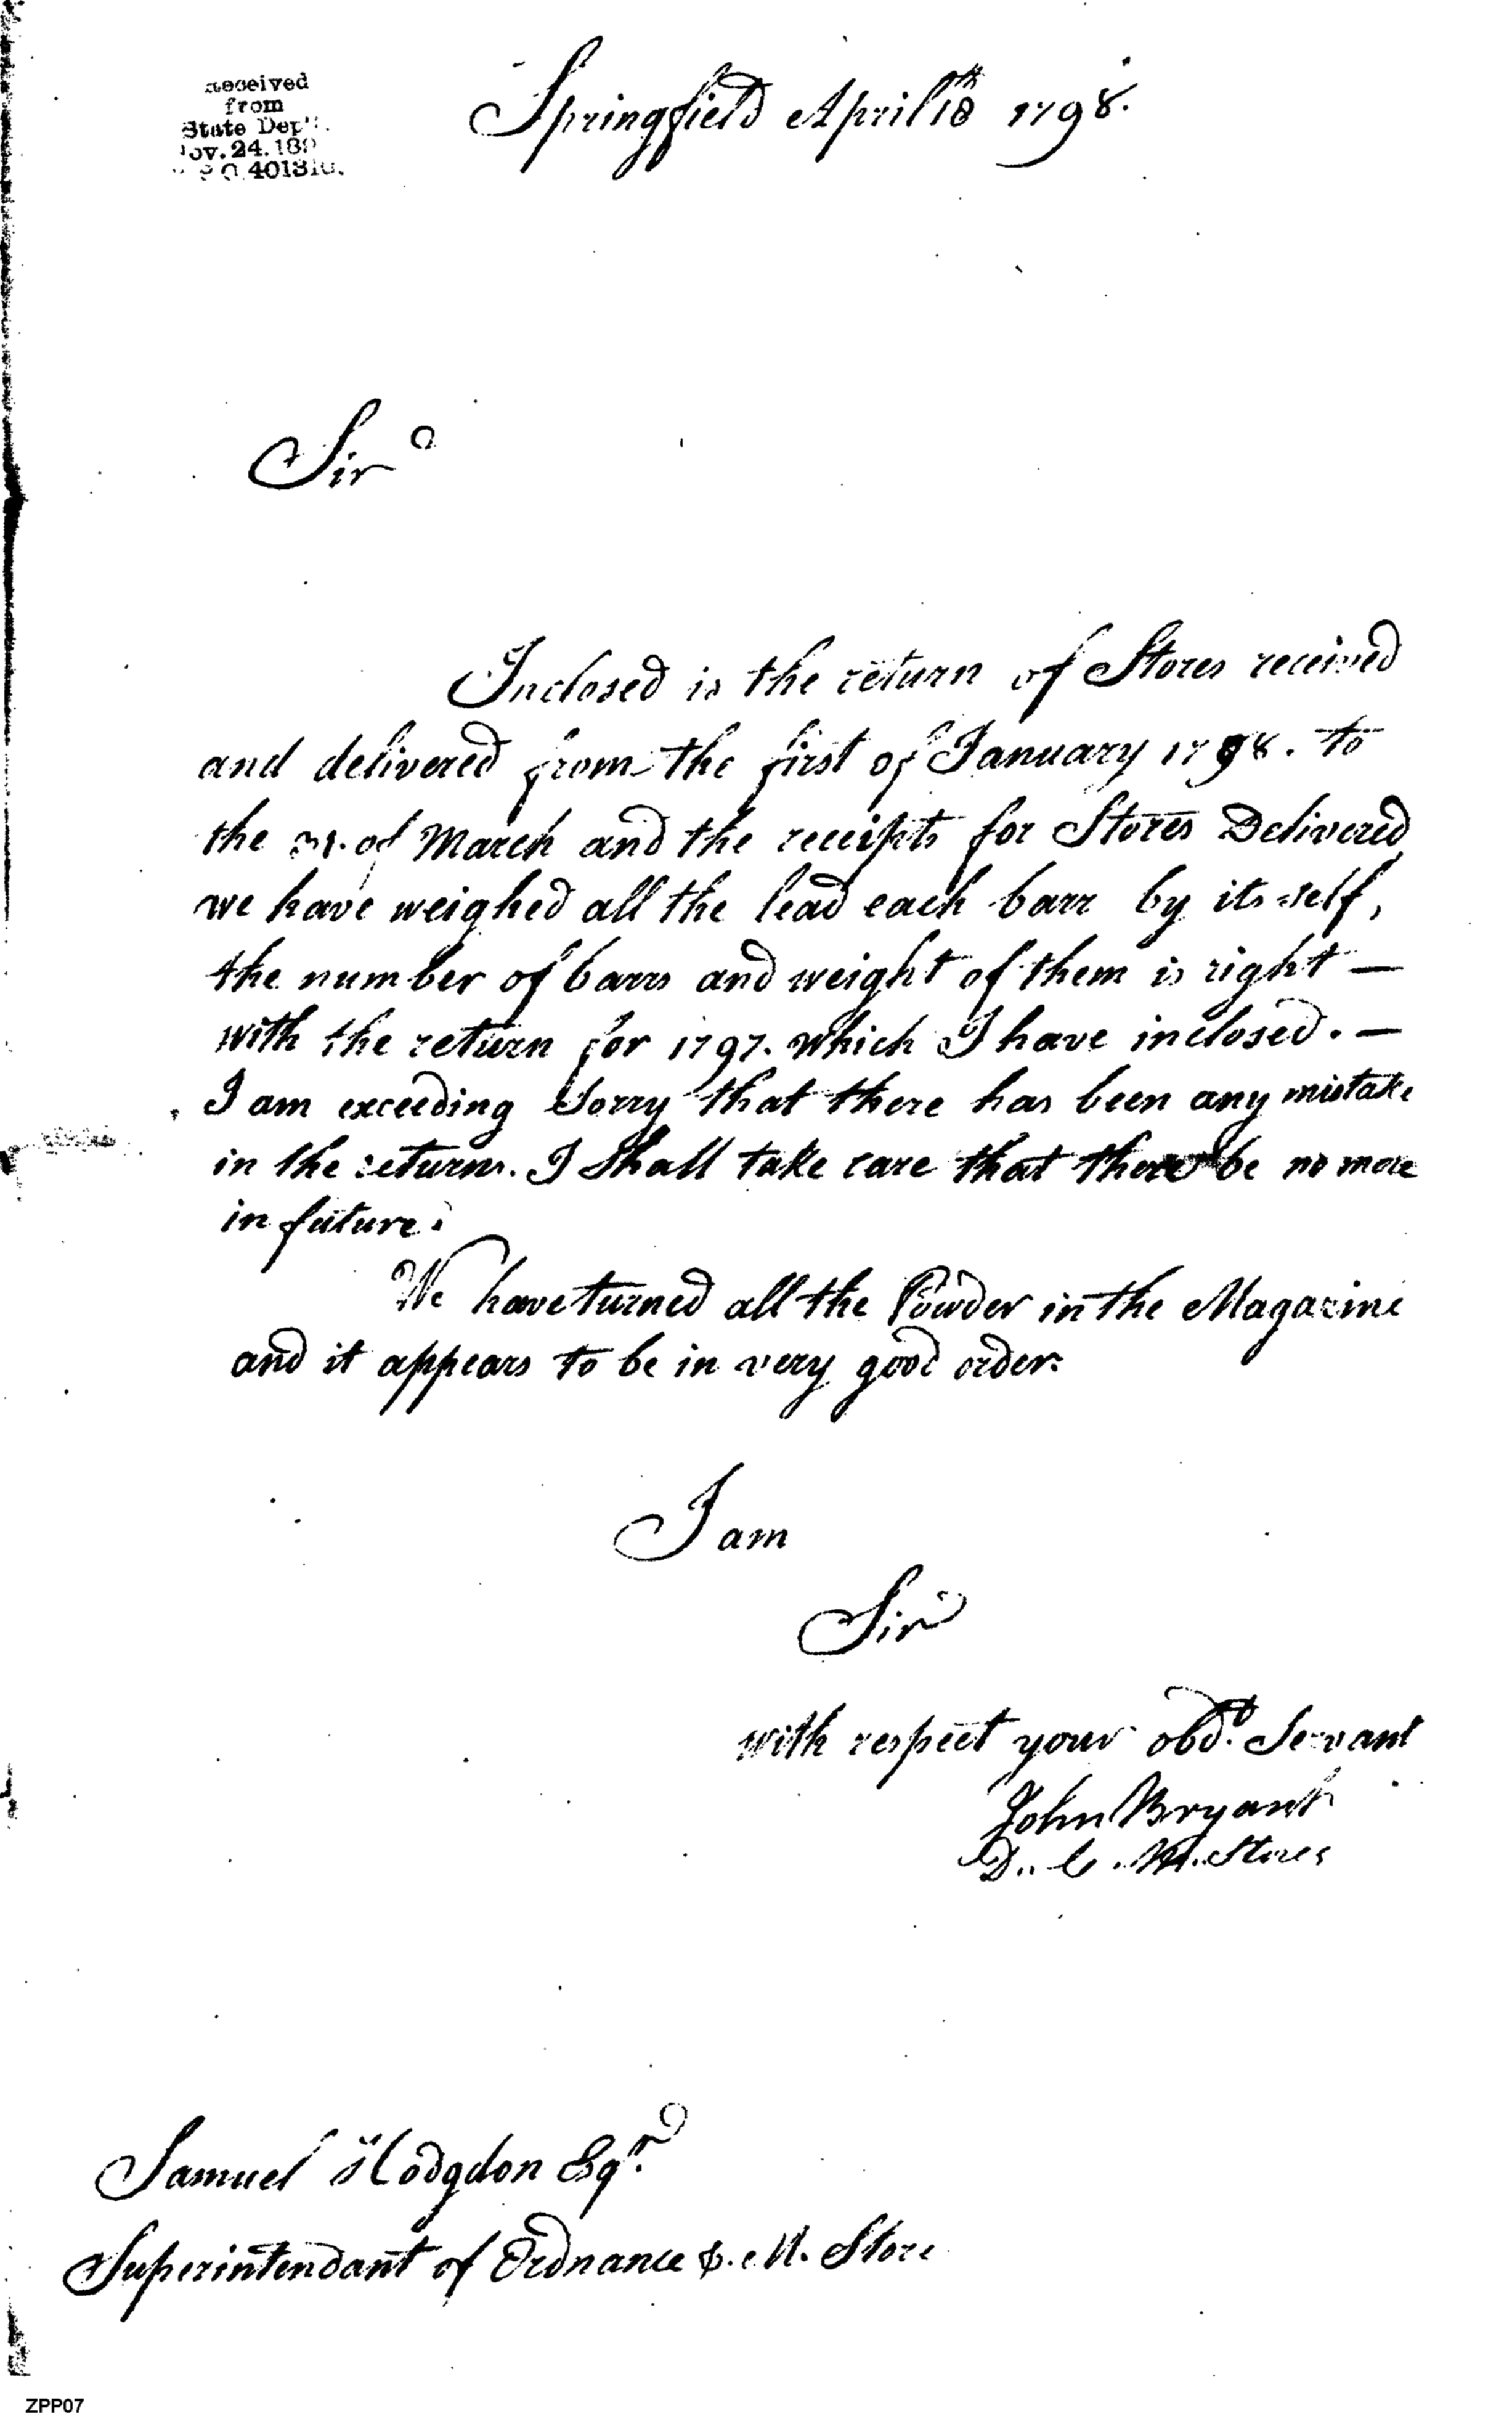 Received
from
State Dep't.
Nov. 24. 189
401310.
Springfield April 18th 1798.
Sir
Inclosed is the return of Stores received
and delivered from the first of January 1798. to
the 31. of March and the receipts for Stores Delivered
we have weighed all the lead each barr by its self,
the number of barrs and weight of them is right —
with the return for 1797. which I have inclosed. —
I am exceeding Sorry that there has been any mistake
in the return. I Shall take care that there be no more
in future.
We have turned all the Powder in the Magazine
and it appears to be in very good order.
I am
Sir
with respect your obdt. Servant
John Bryant
D. C. M. Stores
Samuel Hodgdon Esqr.
Superintendant of Ordnance &. M. Store
ZPP07